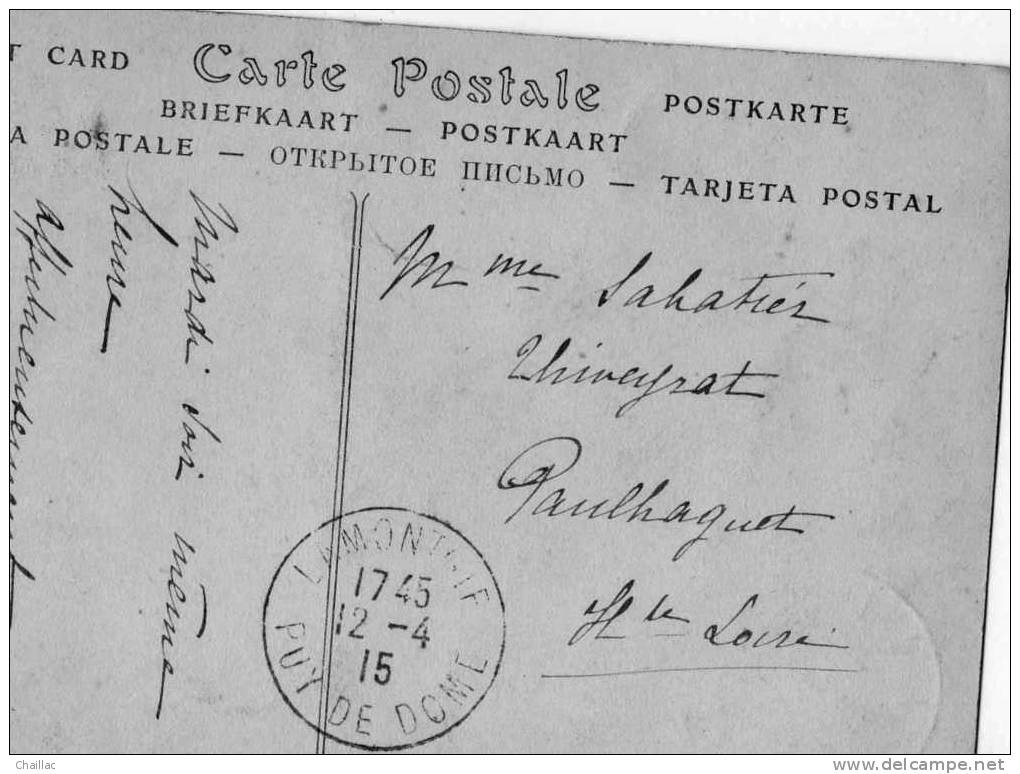 T CARD Carte Postale POSTKARTE
BRIEFKAART — POSTKAART
A POSTALE — ОТКРЫТОЕ ПИСЬМО — TARJETA POSTAL
Mardi soir même
heure
affectueusement
Mme Sabatier
Thiveyrat
Paulhaguet
Hte Loire
LAMONTGIE
1745
12 -4
15
PUY DE DOME
Chaillac
www.delcampe.net